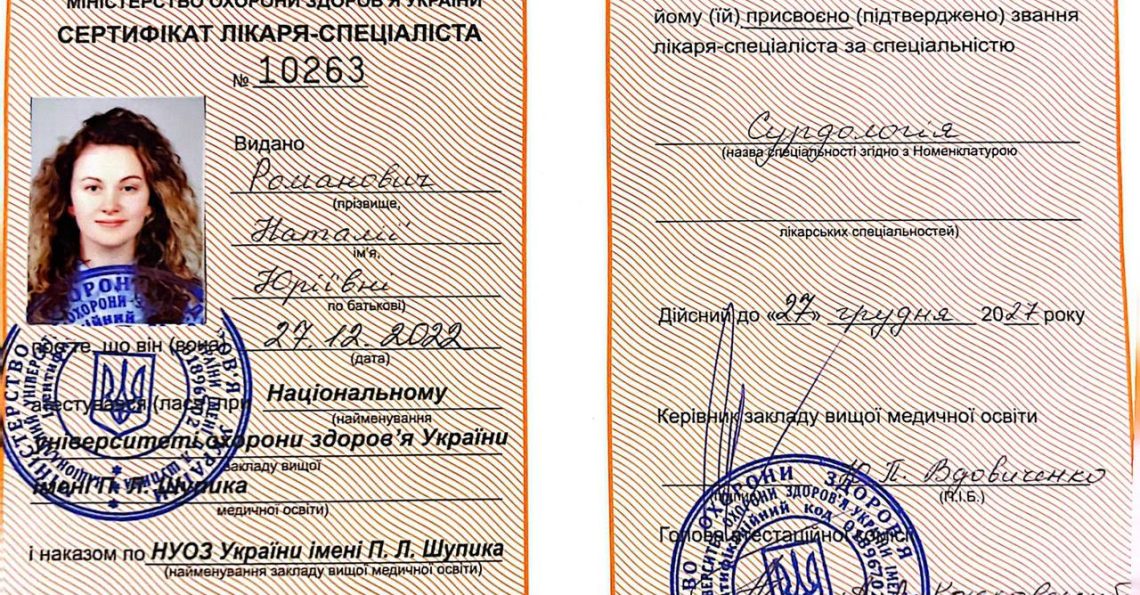 МІНІСТЕРСТВО ОХОРОНИ ЗДОРОВ'Я УКРАЇНИ
СЕРТИФІКАТ ЛІКАРЯ-СПЕЦІАЛІСТА
№ 10263
Видано
Романович
(прізвище,
Наталії
ім'я,
Юріївні
по батькові)
про те, що він (вона) 27.12.2022
(дата)
атестувався (лась) при Національному
(найменування
університеті охорони здоров'я України
закладу вищої
імені П. Л. Шупика
медичної освіти)
і наказом по НУОЗ України імені П. Л. Шупика
(найменування закладу вищої медичної освіти)
йому (їй) присвоєно (підтверджено) звання
лікаря-спеціаліста за спеціальністю
Сурдологія
(назва спеціальності згідно з Номенклатурою
лікарських спеціальностей)
Дійсний до «27» грудня 2027 року
Керівник закладу вищої медичної освіти
Ю. П. Вдовиченко
(П.І.Б.)
Голова атестаційної комісії